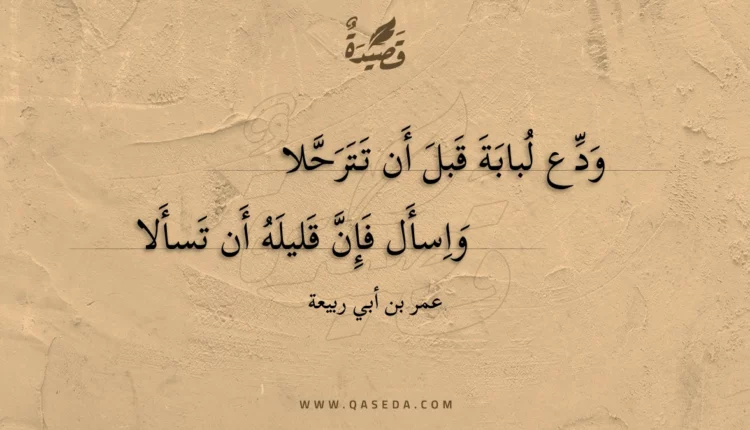 قَصِيدَةٌ
وَدِّع لُبابَةَ قَبلَ أَن تَتَرَحَّلا
وَاِسأَل فَإِنَّ قَليلَهُ أَن تَسأَلا
عمر بن أبي ربيعة
WWW.QASEDA.COM